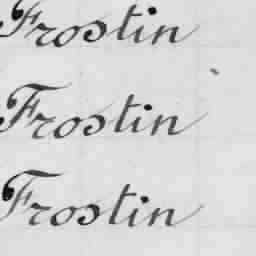 Frostin
Frostin
Frostin